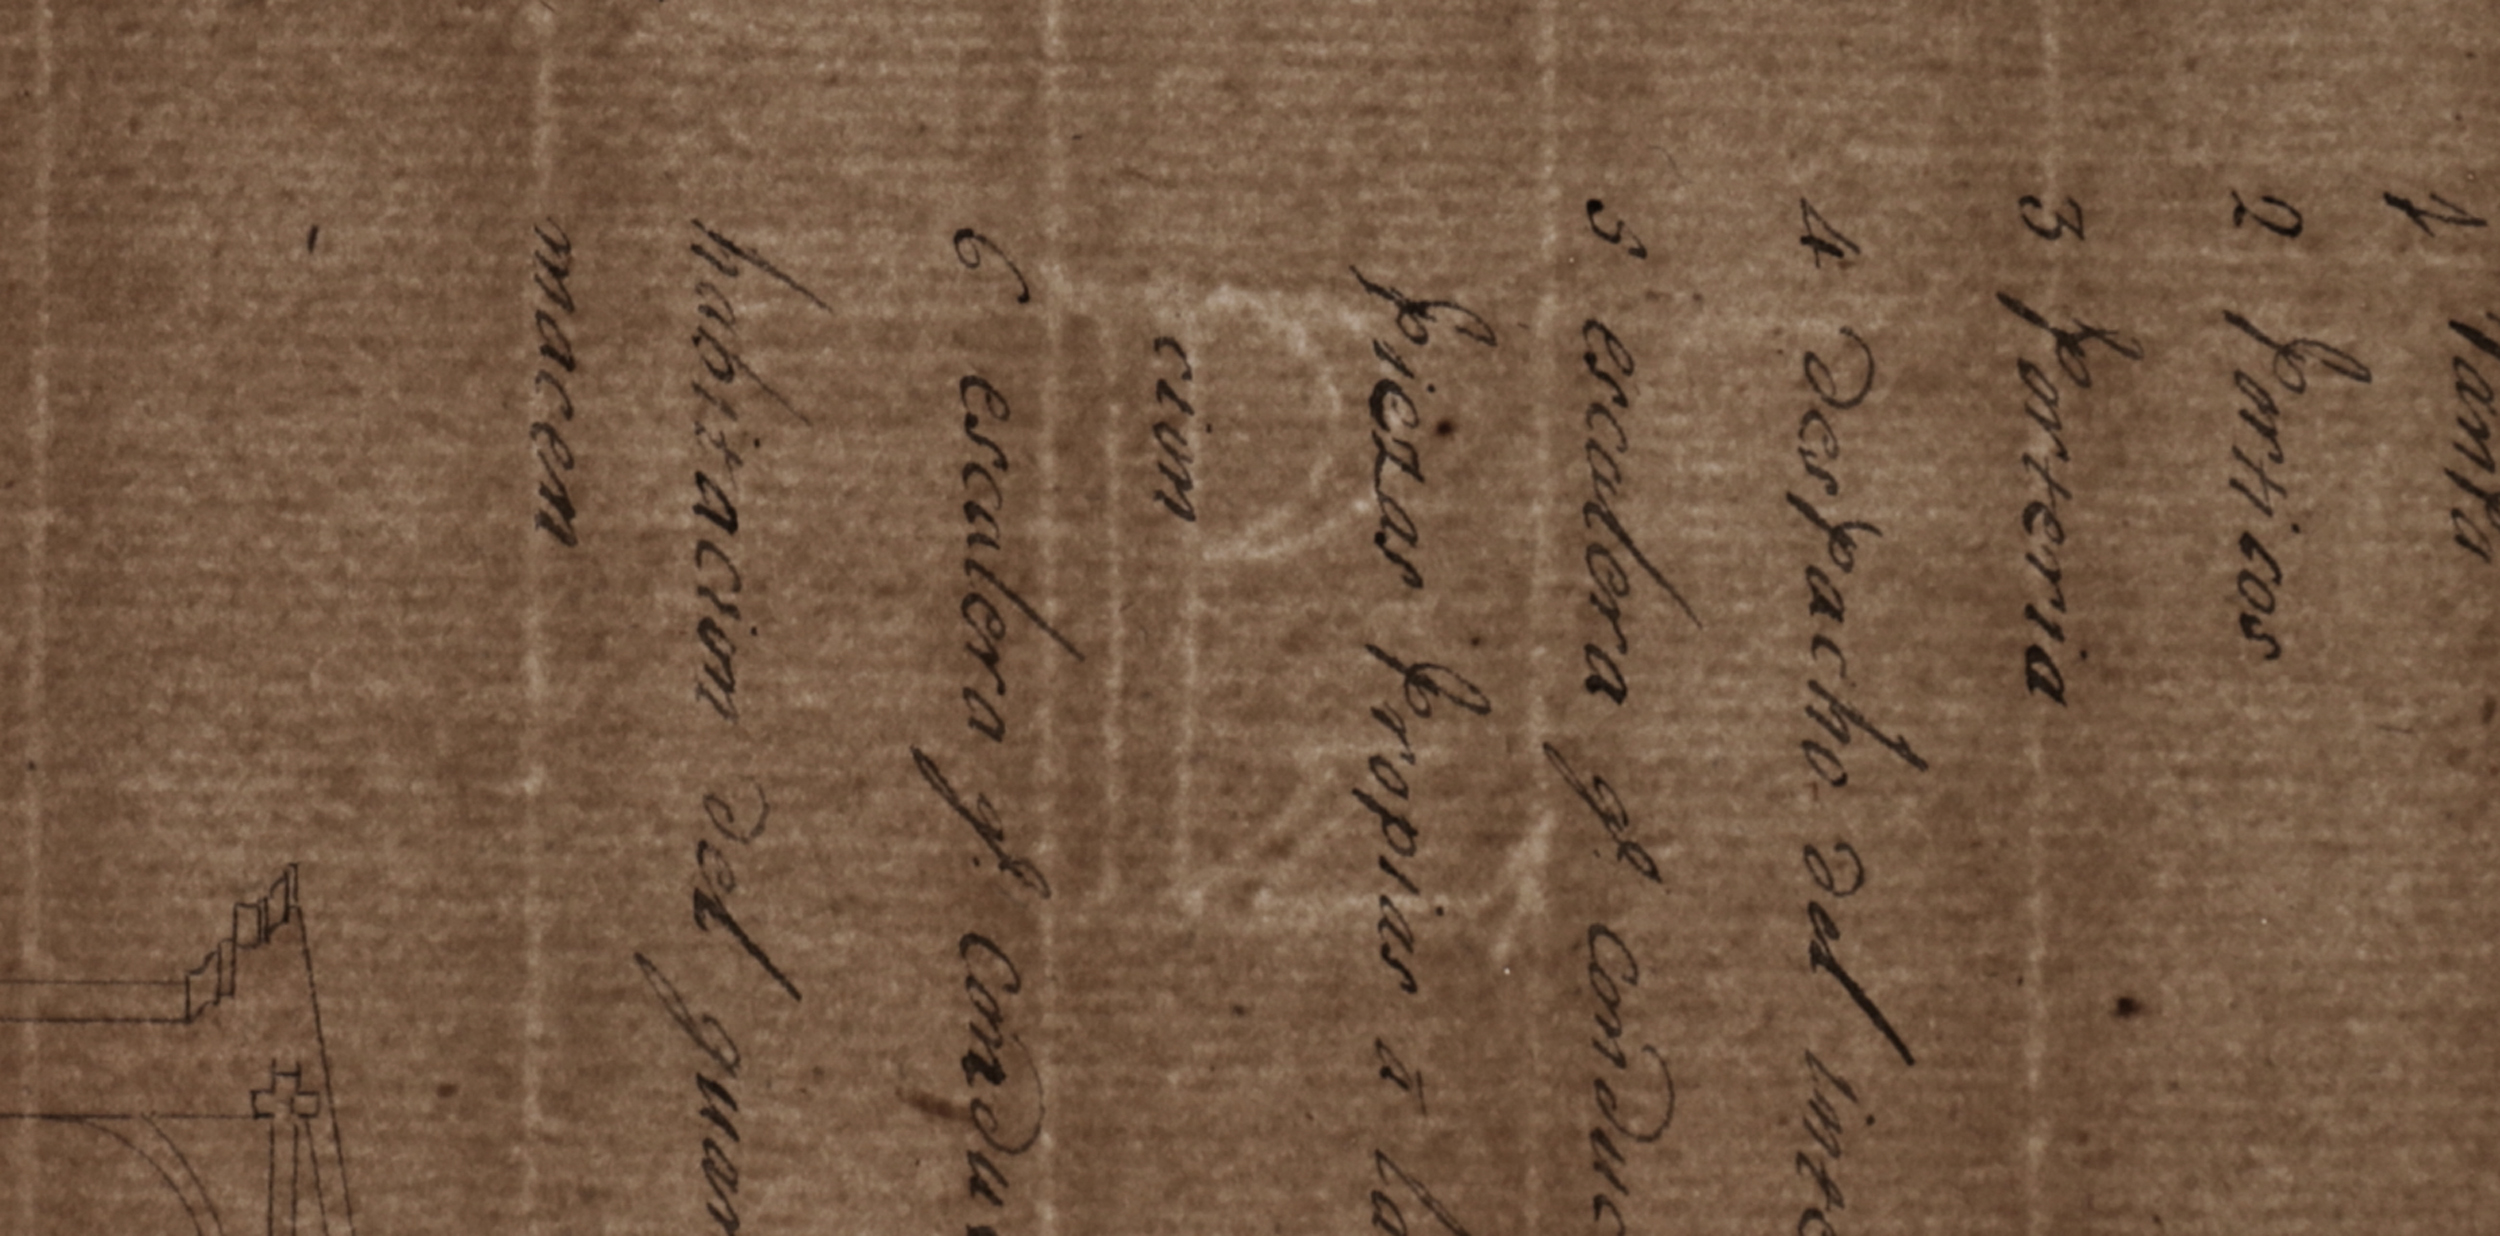 1 Pampa
2 porticos
3 porteria
4 despacho del inte
5 escalera qe. conduc
piezas propias â la
cion
6 escalera qe. condu
habitacion del guar
macen